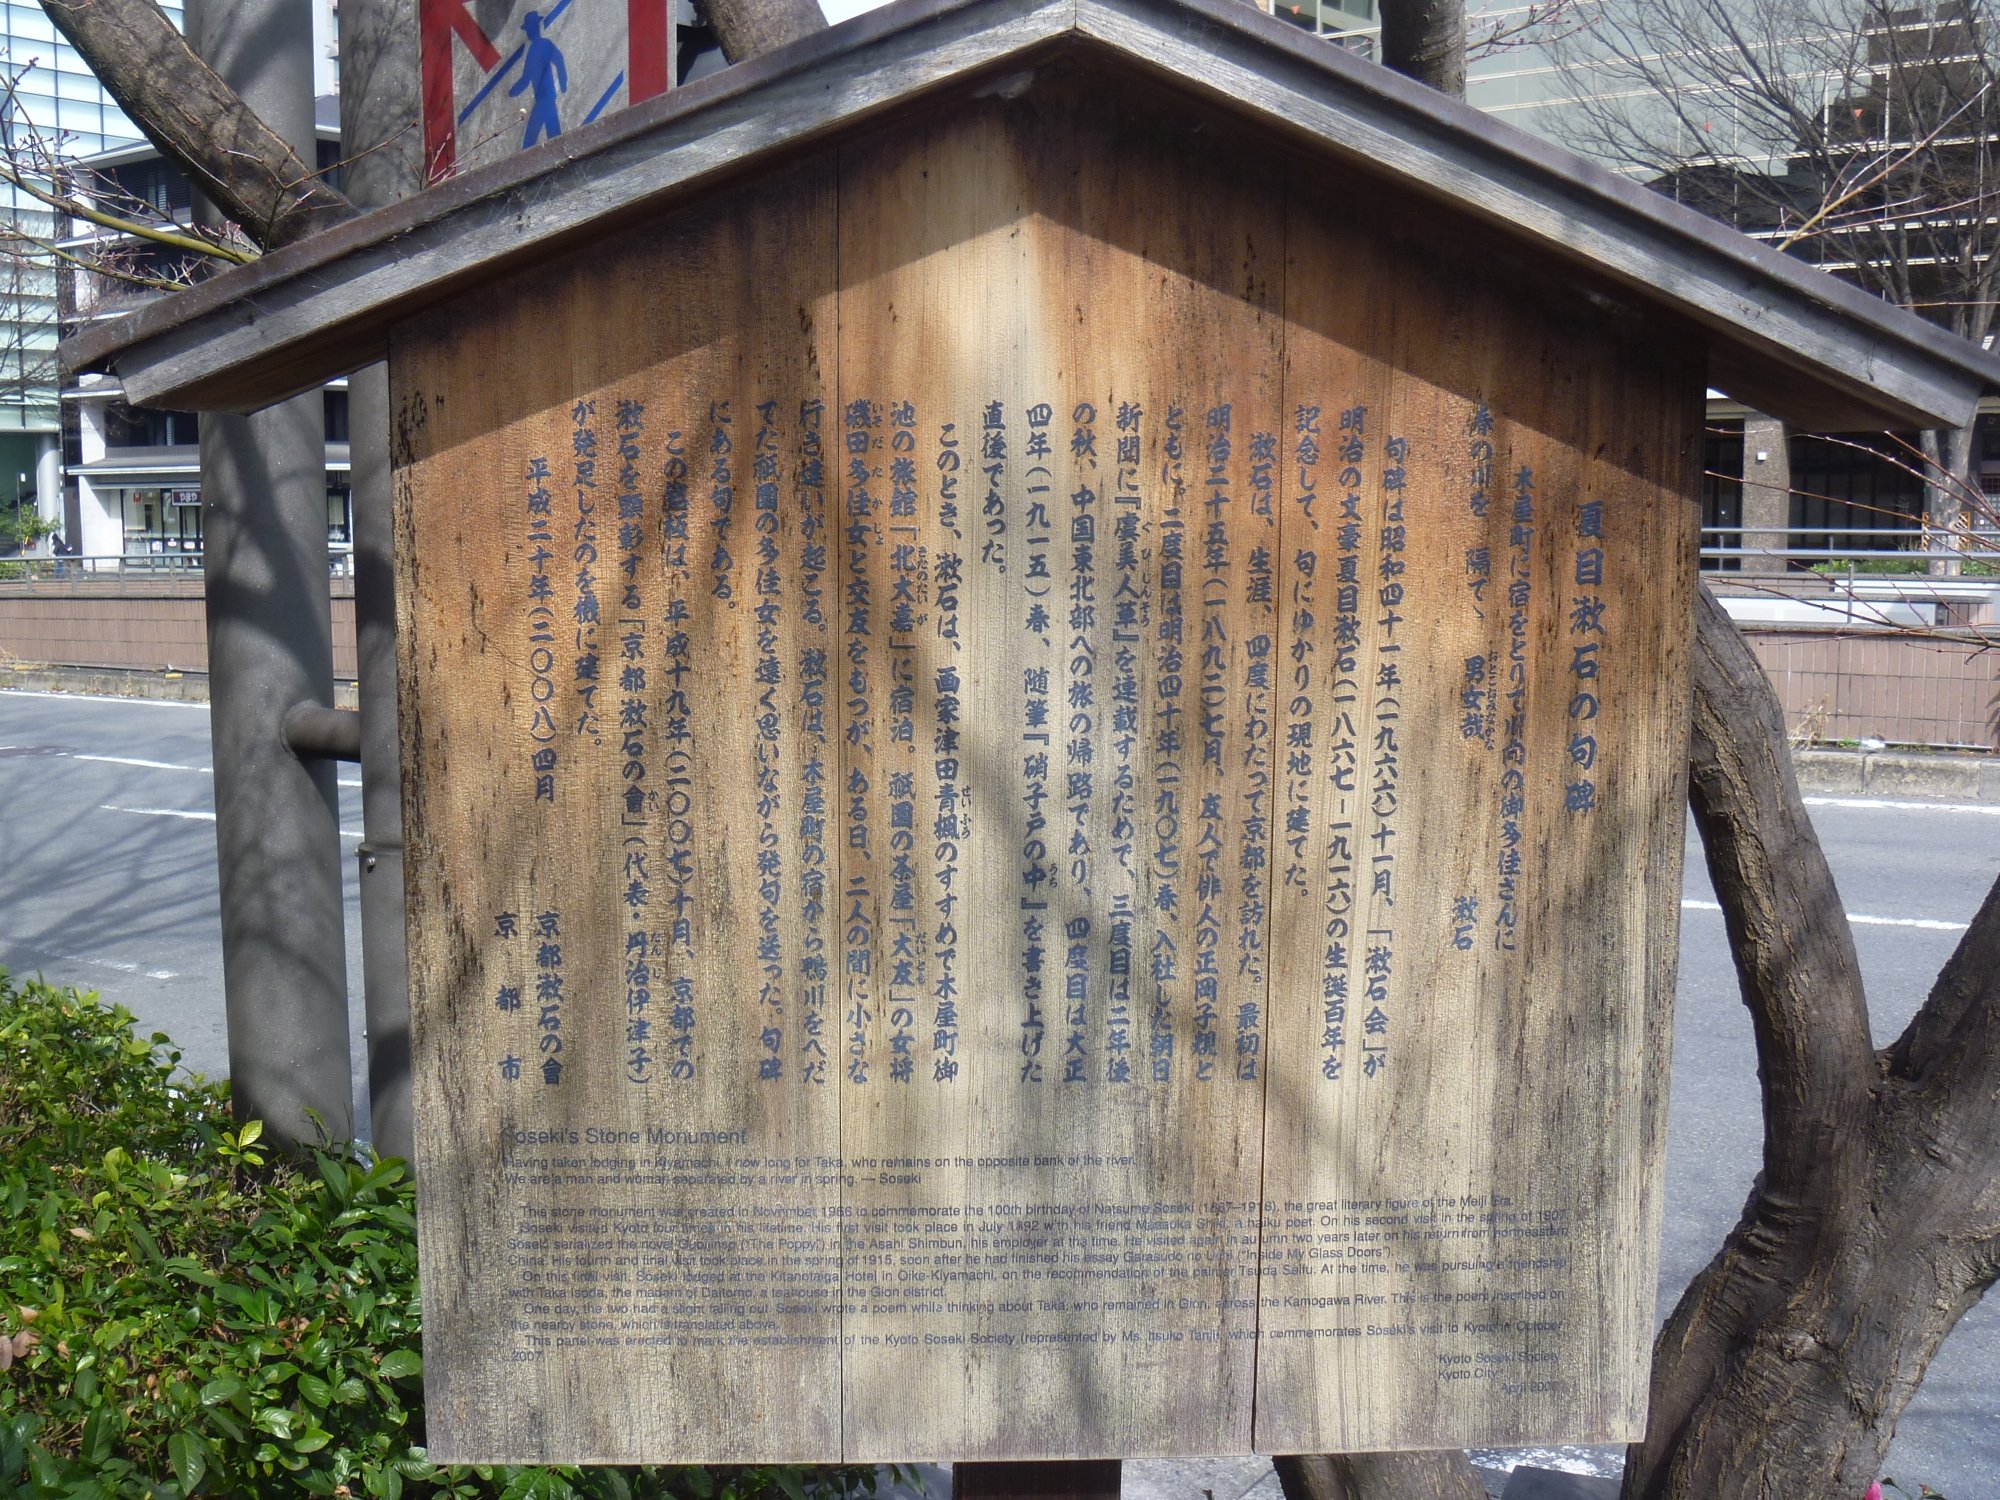 夏目漱石の句碑
木屋町に宿をとりて川向の御多佳さんに
春の川を 隔てゝ 男女哉
おとこおみなかな
漱石
句碑は昭和四十一年(一九六六)十一月、「漱石会」が
明治の文豪夏目漱石(一八六七-一九一六)の生誕百年を
記念して、句にゆかりの現地に建てた。
漱石は、生涯、四度にわたって京都を訪れた。最初は
明治二十五年(一八九二)七月、友人で俳人の正岡子規と
ともに。二度目は明治四十年(一九〇七)春、入社した朝日
新聞に『虞美人草』を連載するためで、三度目は二年後
ぐびじんそう
の秋、中国東北部への旅の帰路であり、四度目は大正
四年(一九一五)春、随筆『硝子戸の中』を書き上げた
うち
直後であった。
このとき、漱石は、画家津田青楓のすすめで木屋町御
せいふう
池の旅館「北大嘉」に宿泊。祇園の茶屋「大友」の女将
きたのたいが
だいとも
磯田多佳女と交友をもつが、ある日、二人の間に小さな
いそだたかじょ
行き違いが起こる。漱石は、木屋町の宿から鴨川をへだ
てた祇園の多佳女を遠く思いながら発句を送った。句碑
にある句である。
この駒板は、平成十九年(二〇〇七)十月、京都での
漱石を顕彰する「京都漱石の會」(代表・丹治伊津子)
かい
たんじ
が発足したのを機に建てた。
平成二十年(二〇〇八)四月
京都漱石の會
京都市
Soseki's Stone Monument
Having taken lodging in Kiyamachi, I now long for Taka, who remains on the opposite bank of the river.
We are a man and woman separated by a river in spring. — Soseki
This stone monument was created in November 1966 to commemorate the 100th birthday of Natsume Soseki (1867–1916), the great literary figure of the Meiji Era.
Soseki visited Kyoto four times in his lifetime. His first visit took place in July 1892 with his friend Masaoka Shiki, a haiku poet. On his second visit in the spring of 1907,
Soseki serialized the novel Gubijinso ("The Poppy") in the Asahi Shimbun, his employer at the time. He visited again in autumn two years later on his return from northeastern
China. His fourth and final visit took place in the spring of 1915, soon after he had finished his essay Garasudo no Uchi ("Inside My Glass Doors").
On this final visit, Soseki lodged at the Kitanotaiga Hotel in Oike-Kiyamachi, on the recommendation of the painter Tsuda Seifu. At the time, he was pursuing a friendship
with Taka Isoda, the madam of Daitomo, a teahouse in the Gion district.
One day, the two had a slight falling out. Soseki wrote a poem while thinking about Taka, who remained in Gion, across the Kamogawa River. This is the poem inscribed on
the nearby stone, which is translated above.
This panel was erected to mark the establishment of the Kyoto Soseki Society (represented by Ms. Itsuko Tanji), which commemorates Soseki's visit to Kyoto in October
2007.
Kyoto Soseki Society
Kyoto City
April 2008